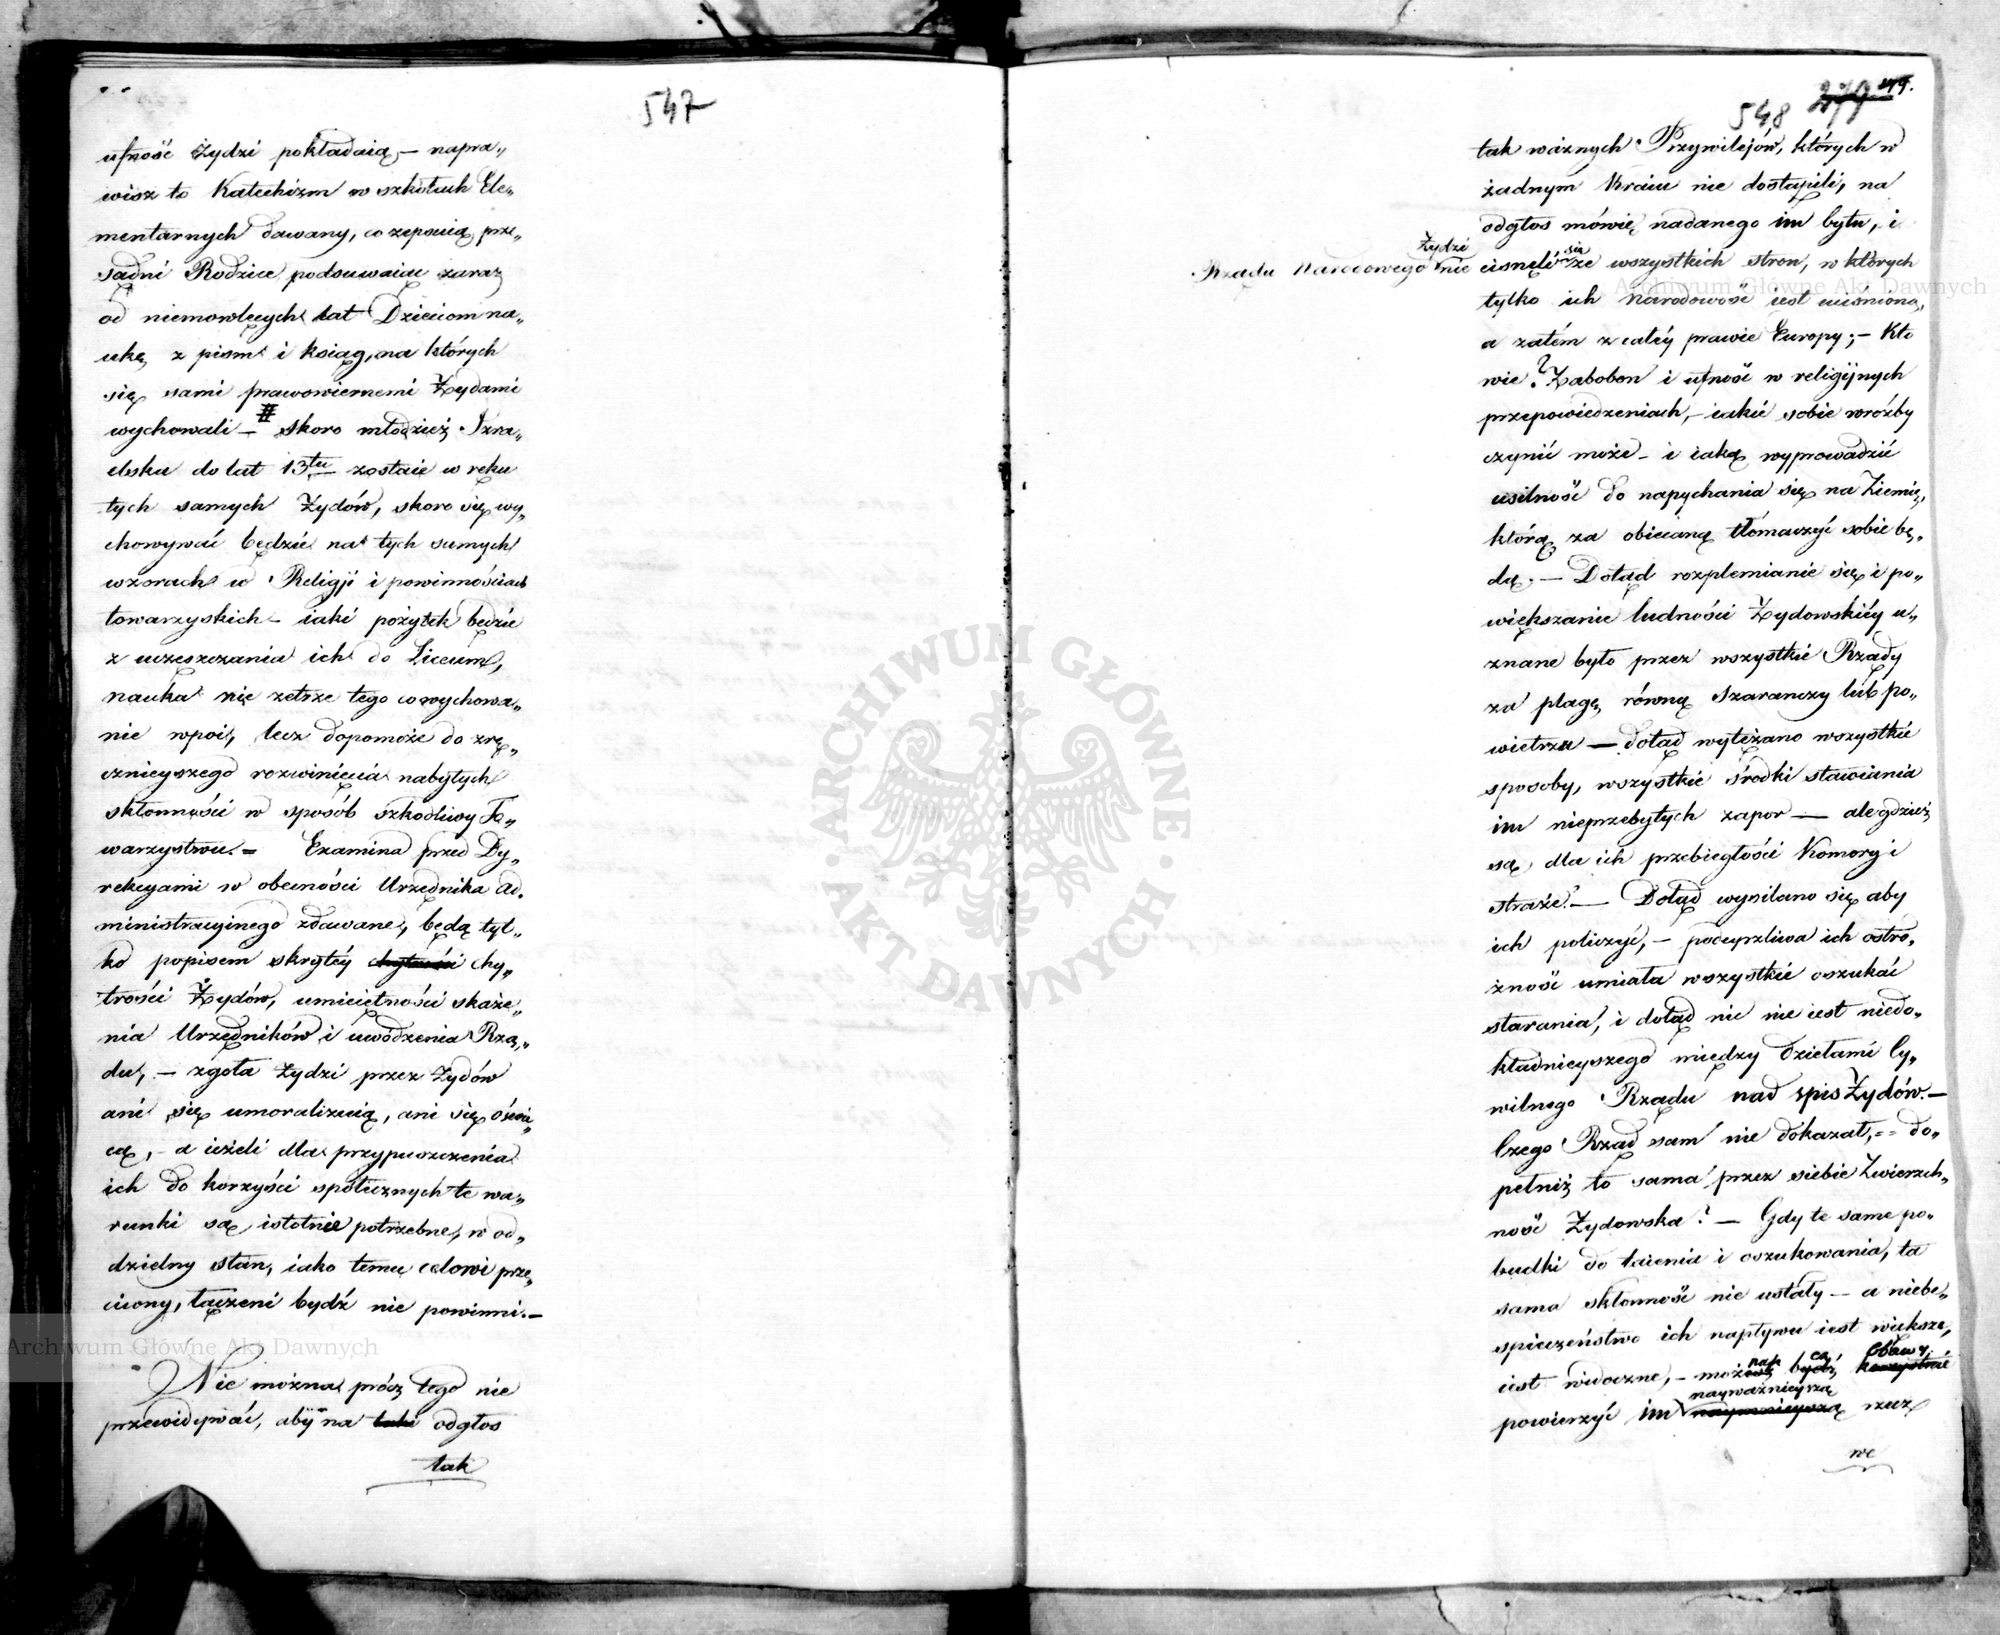 547
ufność Żydzi pokładaią, — napra„
wisz to Katechizm w szkołach Ele„
mentarnych dawany, co zepsuią prze„
sądni Rodzice podsuwaiąc zaraz
od niemowlęcych lat Dzieciom na„
ukę z pism i ksiąg, na których
się sami prawowiernemi Żydami
wychowali — # skoro młodzież Izra„
elska do lat 13tu zostaie w ręku
tych samych Żydów, skoro się wy„
chowywać będzie na tych samych
wzorach w Religji i powinnościach
towarzyskich — iaki pożytek będzie
z uczęszczania ich do Liceum,
nauka nie zetrze tego co wychowa„
nie wpoi, lecz dopomoże do zrę„
cznieyszego rozwinięcia nabytych
skłonności w sposób szkodliwy To„
warzystwu. = Examina przed Dy„
rekcyami w obecności Urzędnika ad„
ministracyinego zdawane, będą tyl„
ko popisem skrytéy chytrości chy„
trości Żydów, umieiętności skaże„
nia Urzędników i uwodzenia Rzą„
du, — zgoła Żydzi przez Żydów
ani się umoralizuią, ani się oświe„
cą, — a ieżeli dla przypuszczenia
ich do korzyści społecznych te wa„
runki są istotnie potrzebne, w od„
dzielny stan, iako temu celowi prze„
ciwny, łączeni bydź nie powinni. —
Nie można prócz tego nie
przewidywać, aby na odgłos
tak
548 279 49.
tak ważnych Przywilejów, których w
żadnym Kraiu nie dostąpili, na
odgłos mówię nadanego im bytu, i
Rządu Narodowego Żydzi nie cisnęli się ze wszystkich stron, w których
tylko ich Narodowość iest uciśniona,
a zatém z całéy prawie Europy; — Kto
wie? Zabobon i ufność w religijnych
przepowiedzeniach, — iakie sobie wróżby
czynić może — i iaką wyprowadzić
usilność do napychania się na Ziemię,
którą za obiecaną tłómaczyć sobie bę„
dą. — Dotąd rozplemianie się i po„
większanie ludności Żydowskiéy u„
znane było przez wszystkie Rządy
za plagę równą Szarańczy lub po„
wietrzu — dotąd wytężano wszystkie
sposoby, wszystkie środki stawiania
im nieprzebytych zapor — ale gdzież
są dla ich przebiegłości Komory i
straże? — Dotąd wysilano się aby
ich policzyć, — podeyrzliwa ich ostro„
żność umiała wszystkie oszukać
starania, i dotąd nic nie iest niedo„
kładnieyszego między dziełami Cy„
wilnego Rządu nad spis Żydów. —
Czego Rząd sam nie dokazał, == do„
pełniż to sama przez siebie Zwierzch„
ność Żydowska? — Gdy te same po„
budki do taienia i oszukowania, ta
sama skłonność nie ustały — a niebe„
spieczeństwo ich napływu iest większe,
iest widoczne, — możnaż bydź obawy
powierzyć im nayważnieyszą naymnieyszą rzecz
we